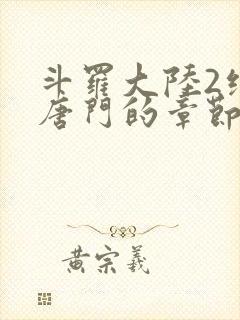 斗羅大陸2
唐門的章節
黃宗羲